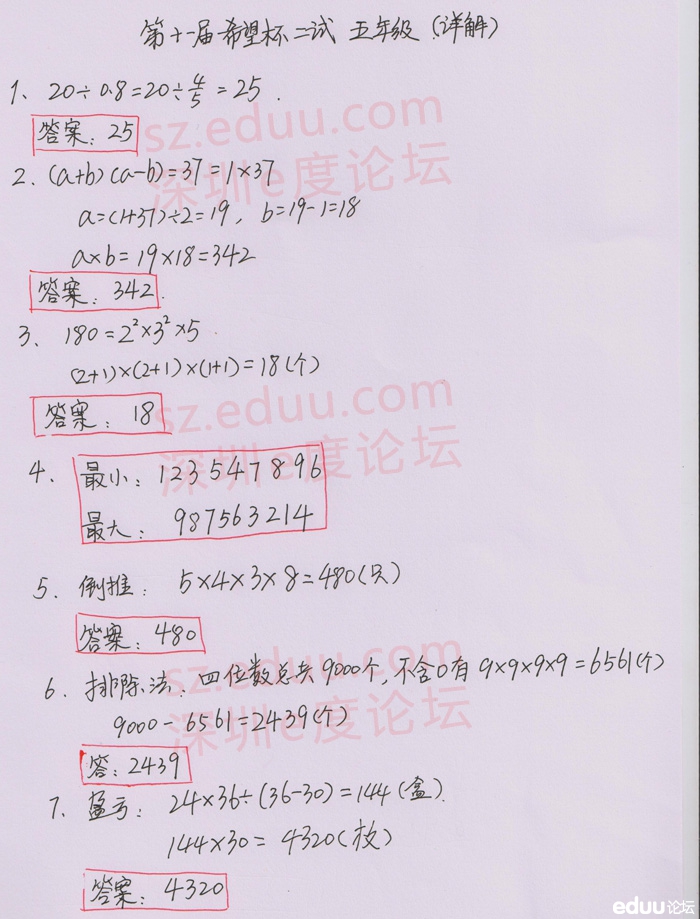 第十一届希望杯二试 五年级 (详解)
1、 20÷0.8=20÷4/5=25.
答案：25
2. (a+b)(a-b)=37=1×37
a=(1+37)÷2=19, b=19-1=18
a×b=19×18=342
答案：342.
3、 180=2²×3²×5
(2+1)×(2+1)×(1+1)=18(个)
答案：18
4、 最小：123547896
最大：987563214
5、 倒推： 5×4×3×8=480(只)
答案：480
6、 排除法：四位数总共9000个,不含0有9×9×9×9=6561(个)
9000-6561=2439(个)
答：2439
7、 盈亏： 24×36÷(36-30)=144(盒)
144×30=4320(枚)
答案：4320
sz.eduu.com
深圳e度论坛
sz.eduu.com
深圳e度论坛
sz.eduu.com
深圳e度论坛
eduu论坛